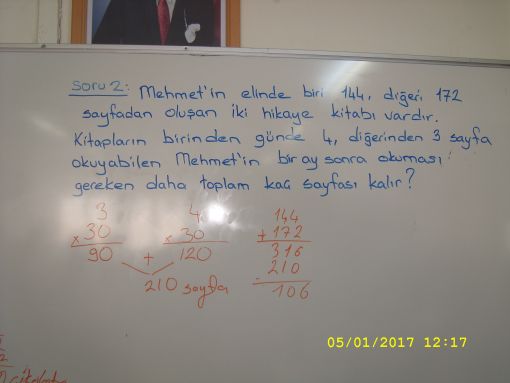 Soru 2: Mehmet'in elinde biri 144, diğeri 172
sayfadan oluşan iki hikaye kitabı vardır.
Kitapların birinden günde 4, diğerinden 3 sayfa
okuyabilen Mehmet'in bir ay sonra okuması
gereken daha toplam kaç sayfası kalır?
3 4 144
x 30 x 30 + 172
90 + 120 316
210 sayfa 210
- 106
05/01/2017 12:17